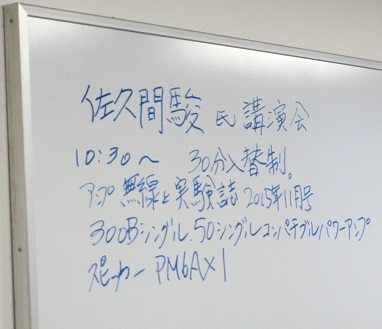 佐久間駿 氏 講演会
10:30〜 30分入替制。
アンプ 無線と実験誌 2015年11月号
300Bシングル、50シングルコンパチブルパワーアンプ
スピーカー PM6A×1